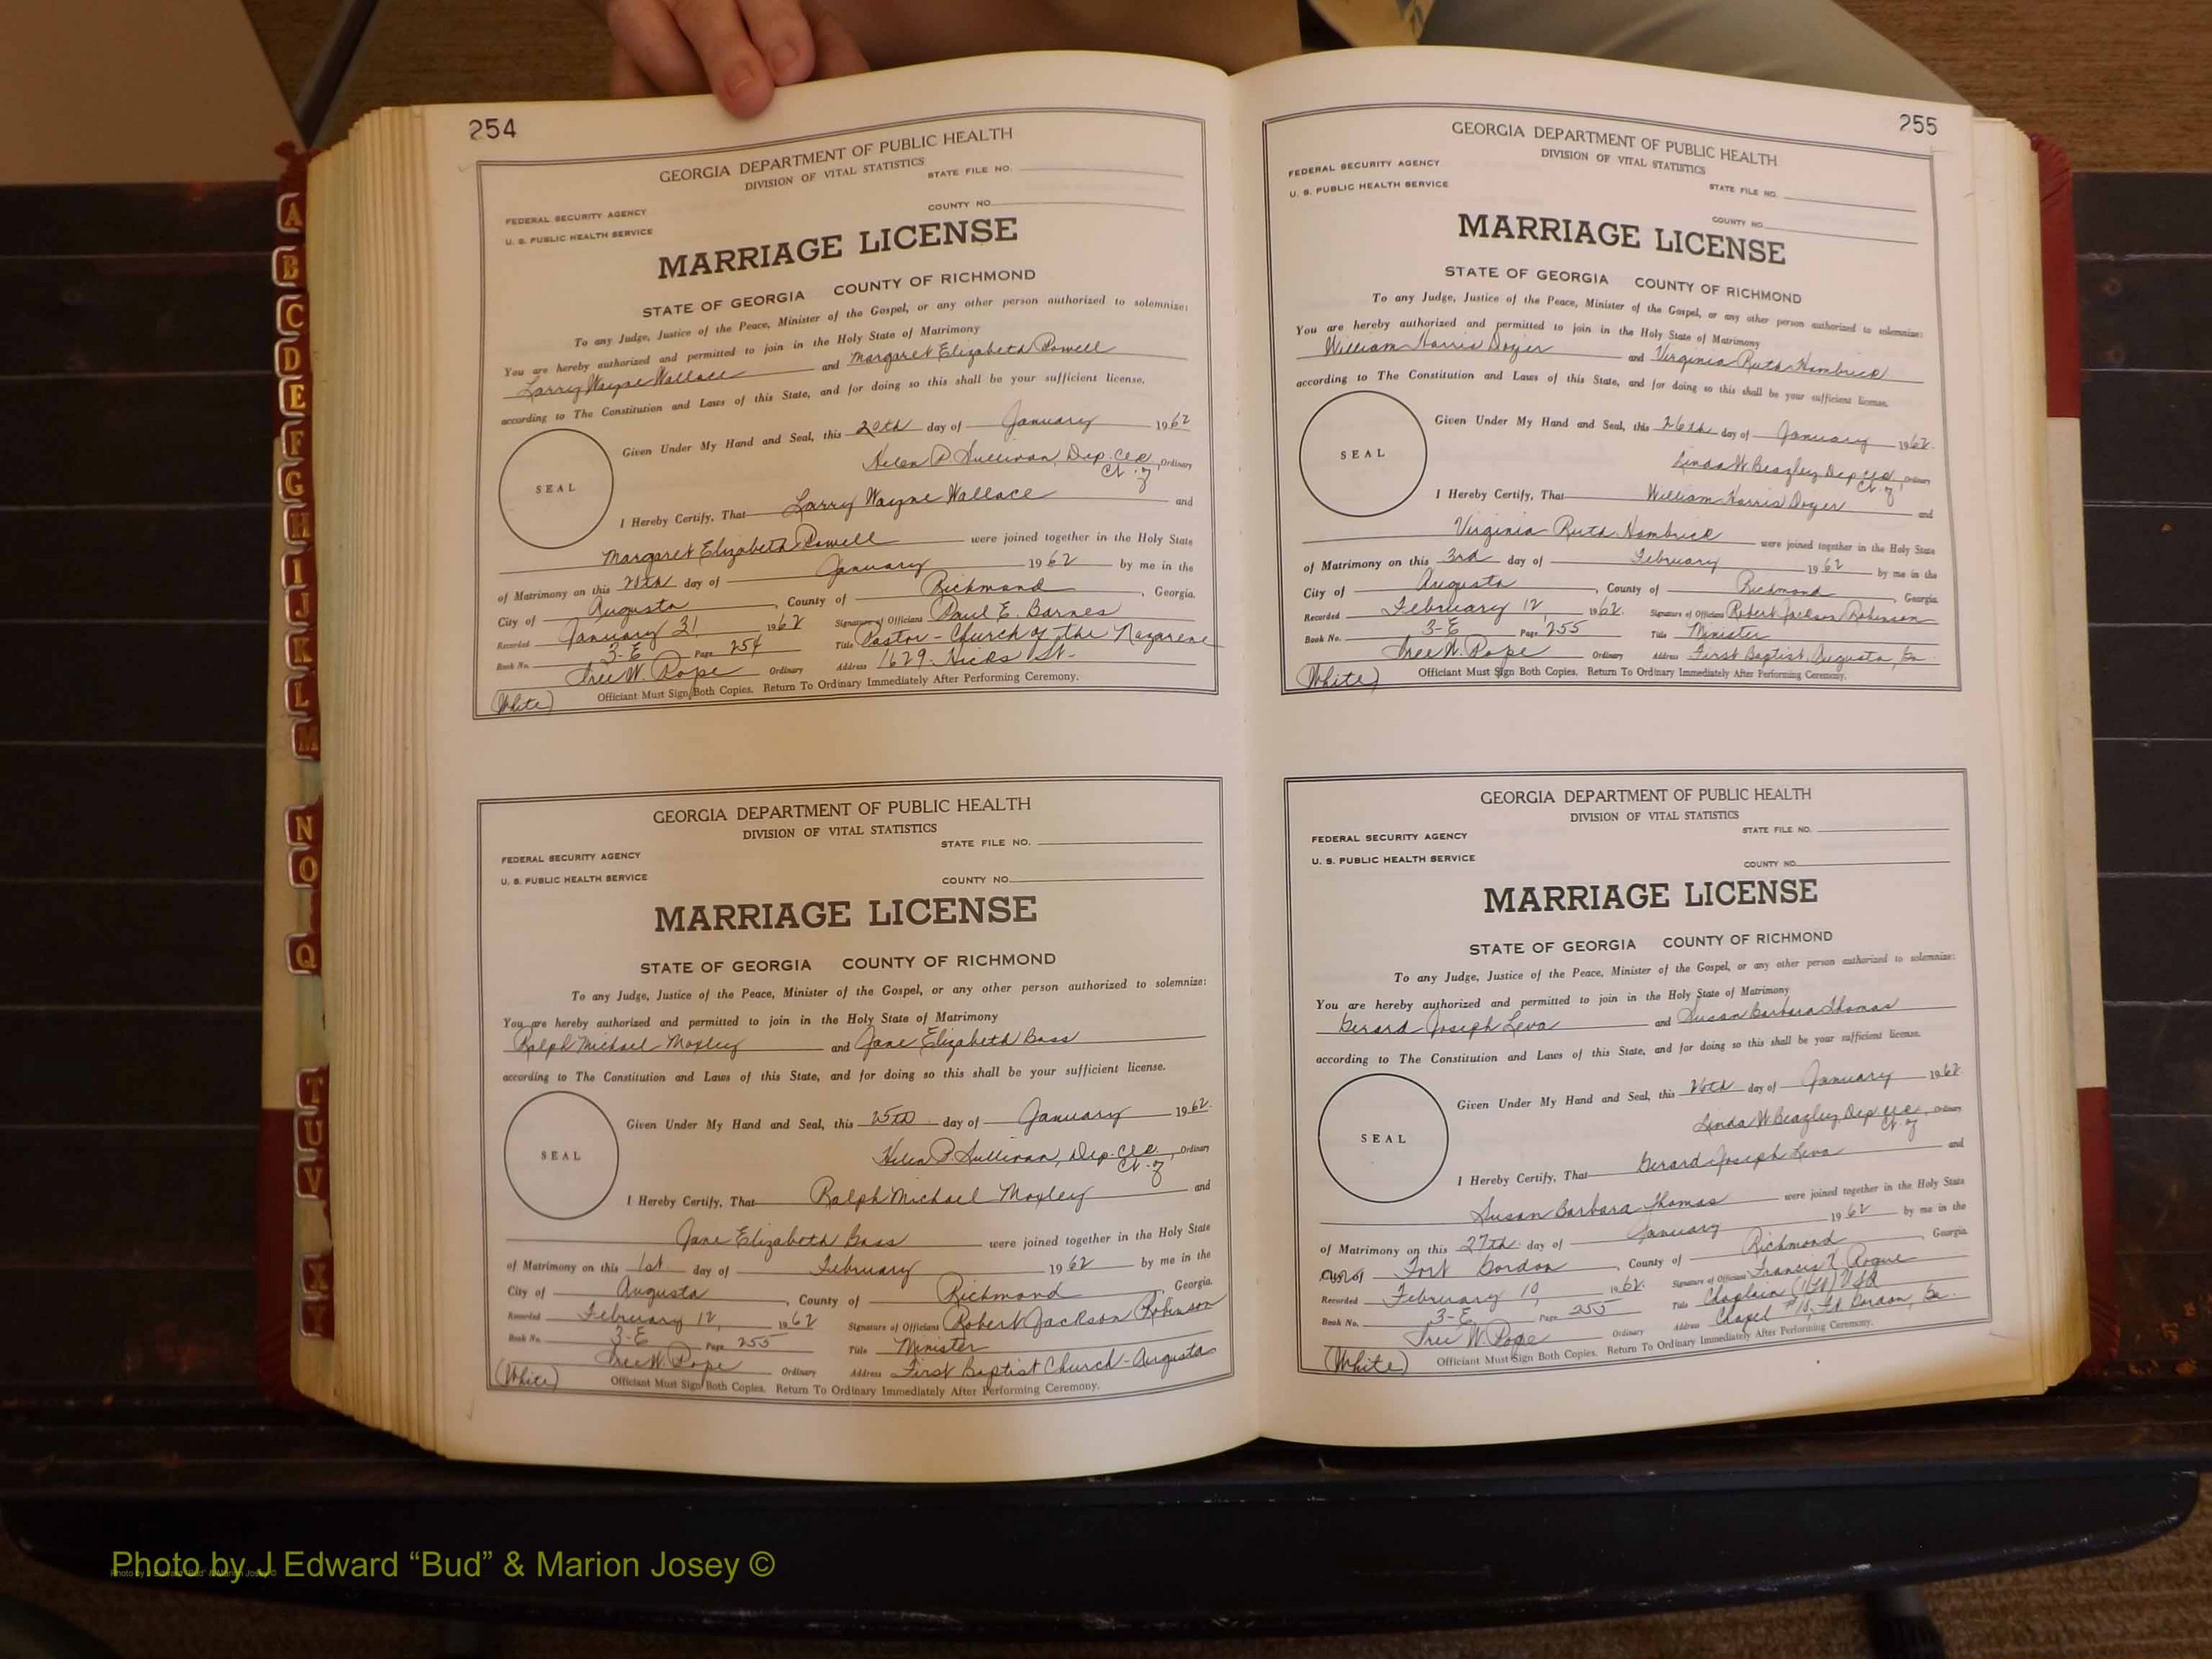 254
GEORGIA DEPARTMENT OF PUBLIC HEALTH
DIVISION OF VITAL STATISTICS
STATE FILE NO.
FEDERAL SECURITY AGENCY
COUNTY NO.
U. S. PUBLIC HEALTH SERVICE
MARRIAGE LICENSE
STATE OF GEORGIA COUNTY OF RICHMOND
To any Judge, Justice of the Peace, Minister of the Gospel, or any other person authorized to solemnize:
You are hereby authorized and permitted to join in the Holy State of Matrimony
Larry Wayne Wallace and Margaret Elizabeth Powell
according to The Constitution and Laws of this State, and for doing so this shall be your sufficient license.
Given Under My Hand and Seal, this 20th day of January 1962
Helen P. Sullivan, Dep. Clk., Ordinary
Ct. of
SEAL
I Hereby Certify, That Larry Wayne Wallace and
Margaret Elizabeth Powell were joined together in the Holy State
of Matrimony on this 20th day of January 1962 by me in the
City of Augusta, County of Richmond, Georgia.
Recorded January 31 1962 Signature of Officiant Paul E. Barnes
Book No. 3-E Page 254 Title Pastor - Church of the Nazarene
Tree W. Pope Ordinary Address 1629 Hicks St.
(White) Officiant Must Sign Both Copies. Return To Ordinary Immediately After Performing Ceremony.
GEORGIA DEPARTMENT OF PUBLIC HEALTH
DIVISION OF VITAL STATISTICS
STATE FILE NO.
FEDERAL SECURITY AGENCY
U. S. PUBLIC HEALTH SERVICE
COUNTY NO.
MARRIAGE LICENSE
STATE OF GEORGIA COUNTY OF RICHMOND
To any Judge, Justice of the Peace, Minister of the Gospel, or any other person authorized to solemnize:
You are hereby authorized and permitted to join in the Holy State of Matrimony
Ralph Michael Moxley and Jane Elizabeth Bass
according to The Constitution and Laws of this State, and for doing so this shall be your sufficient license.
Given Under My Hand and Seal, this 25th day of January 1962.
Helen P. Sullivan, Dep. Clk., Ordinary
Ct. of
SEAL
I Hereby Certify, That Ralph Michael Moxley and
Jane Elizabeth Bass were joined together in the Holy State
of Matrimony on this 1st day of February 1962 by me in the
City of Augusta, County of Richmond, Georgia.
Recorded February 12, 1962 Signature of Officiant Robert Jackson Robinson
Book No. 3-E Page 255 Title Minister
Tree W. Pope Ordinary Address First Baptist Church - Augusta
(White) Officiant Must Sign Both Copies. Return To Ordinary Immediately After Performing Ceremony.
255
GEORGIA DEPARTMENT OF PUBLIC HEALTH
DIVISION OF VITAL STATISTICS
FEDERAL SECURITY AGENCY
U. S. PUBLIC HEALTH SERVICE
STATE FILE NO.
COUNTY NO.
MARRIAGE LICENSE
STATE OF GEORGIA COUNTY OF RICHMOND
To any Judge, Justice of the Peace, Minister of the Gospel, or any other person authorized to solemnize:
You are hereby authorized and permitted to join in the Holy State of Matrimony
William Harris Dozer and Virginia Ruth Hambrick
according to The Constitution and Laws of this State, and for doing so this shall be your sufficient license.
Given Under My Hand and Seal, this 26th day of January 1962.
Linda W. Beazley, Dep Clk, Ordinary
Ct. of
SEAL
I Hereby Certify, That William Harris Dozer and
Virginia Ruth Hambrick were joined together in the Holy State
of Matrimony on this 3rd day of February 1962 by me in the
City of Augusta, County of Richmond, Georgia.
Recorded February 12, 1962. Signature of Officiant Robert Jackson Robinson
Book No. 3-E Page 255 Title Minister
Tree W. Pope Ordinary Address First Baptist, Augusta, Ga.
(White) Officiant Must Sign Both Copies. Return To Ordinary Immediately After Performing Ceremony.
GEORGIA DEPARTMENT OF PUBLIC HEALTH
DIVISION OF VITAL STATISTICS
STATE FILE NO.
FEDERAL SECURITY AGENCY
U. S. PUBLIC HEALTH SERVICE
COUNTY NO.
MARRIAGE LICENSE
STATE OF GEORGIA COUNTY OF RICHMOND
To any Judge, Justice of the Peace, Minister of the Gospel, or any other person authorized to solemnize:
You are hereby authorized and permitted to join in the Holy State of Matrimony
Gerard Joseph Leva and Susan Barbara Thomas
according to The Constitution and Laws of this State, and for doing so this shall be your sufficient license.
Given Under My Hand and Seal, this 26th day of January 1962
Linda W Beazley, Dep Clk, Ordinary
Ct. of
SEAL
I Hereby Certify, That Gerard Joseph Leva and
Susan Barbara Thomas were joined together in the Holy State
of Matrimony on this 27th day of January 1962 by me in the
City of Fort Gordon, County of Richmond Georgia.
Recorded February 10, 1962. Signature of Officiant Francis X Rogue
Book No. 3-E Page 255 Title Chaplain USA
Tree W. Pope Ordinary Address Chapel Ft Gordon, Ga.
(White) Officiant Must Sign Both Copies. Return To Ordinary Immediately After Performing Ceremony.
A
B
C
D
E
F
G
H
I
J
K
L
M
N
O
Q
T
U
V
X
Y
Photo by J Edward “Bud” & Marion Josey ©
Photo by J Edward “Bud” & Marion Josey ©